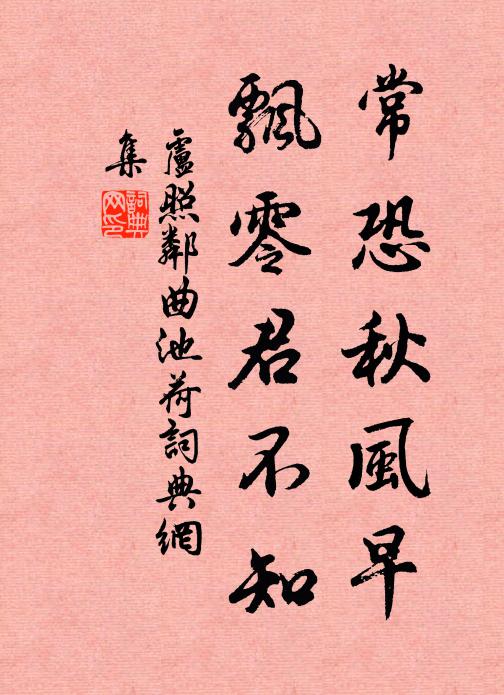 常恐秋風早
飄零君不知
盧照鄰曲池荷詞典網
集
詞典
网印